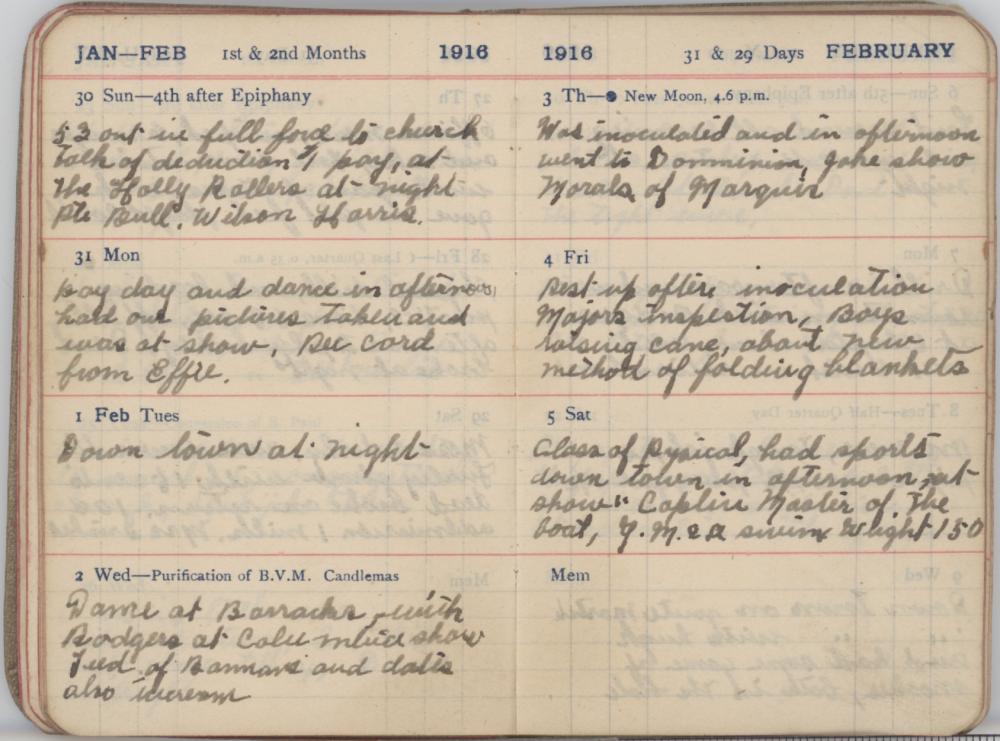 JAN—FEB 1st & 2nd Months 1916
30 Sun—4th after Epiphany
53 out in full force to church
talk of deduction of pay, at
the Holly Rollers at night
Pte Bull, Wilson Harris.
31 Mon
pay day and dance in afternoon
had our pictures taken and
was at show, Rec card
from Effie.
1 Feb Tues
Down town at night
2 Wed—Purification of B.V.M. Candlemas
Dame at Barracks with
Rodgers at Columbia show
Feed of Bannans and dates
also icecream
1916 31 & 29 Days FEBRUARY
3 Th—● New Moon, 4.6 p.m.
Was inoculated and in afternoon
went to Domminion, Joke show
Morals of Marquis
4 Fri
Rest up after inoculation
Majors Inspestion, Boys
raising cane, about new
method of folding blankets
5 Sat
Class of Pysical, had sports
down town in afternoon, at
show " Captin Master of The
boat, Y.M.C.A swim Weight 150
Mem